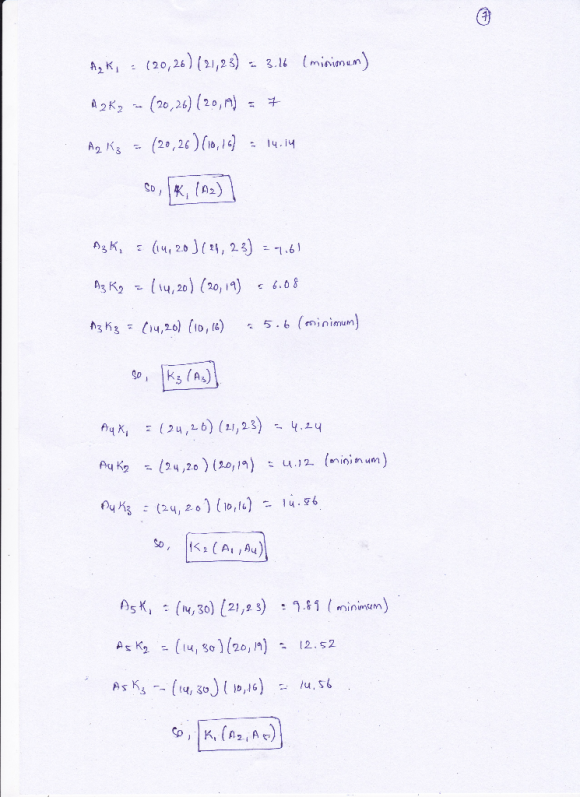 7
A2K1 = (20,26) (21,23) = 3.16 (minimum)
A2K2 = (20,26) (20,19) = 7
A2K3 = (20,26) (10,16) = 14.14
So, K1 (A2)
A3K1 = (14,20) (21,23) = 7.61
A3K2 = (14,20) (20,19) = 6.08
A3K3 = (14,20) (10,16) = 5.6 (minimum)
So, K3 (A3)
A4K1 = (24,20) (21,23) = 4.24
A4K2 = (24,20) (20,19) = 4.12 (minimum)
A4K3 = (24,20) (10,16) = 14.56
So, K2 (A1, A4)
A5K1 = (14,30) (21,23) = 9.89 (minimum)
A5K2 = (14,30) (20,19) = 12.52
A5K3 = (14,30) (10,16) = 14.56
So, K1 (A2, A5)